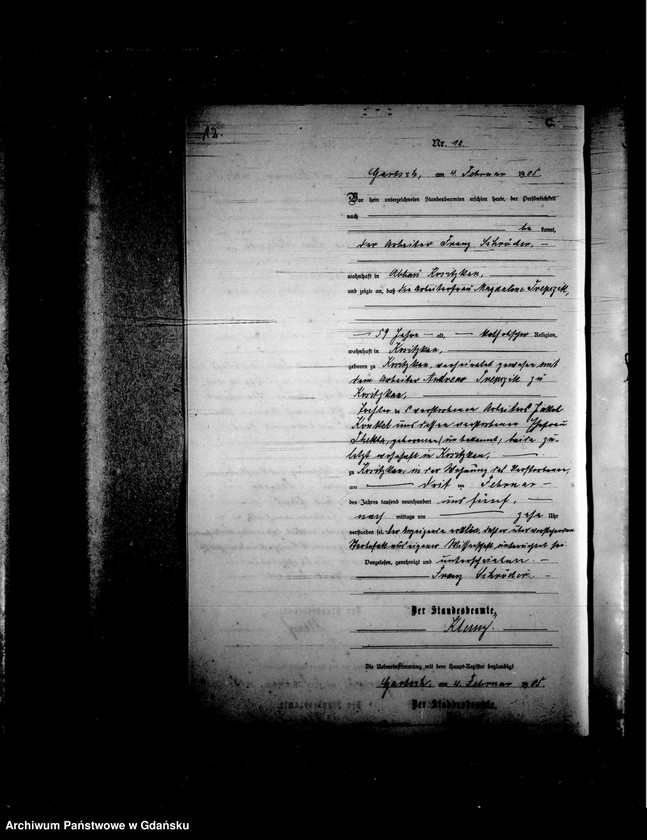 12.
C.
Nr. 12.
Gartsch, am 4. Februar 1905.
Vor dem unterzeichneten Standesbeamten erschien heute, der Persönlichkeit
nach
be kannt,
der Arbeiter Franz Schröder,
wohnhaft in Abbau
und zeigte an, daß die Arbeiterfrau Magdalena Trepczik,
59 Jahre alt, katholischer Religion,
wohnhaft in
geboren zu verheiratet gewesen mit
dem Arbeiter Andreas Trepczik zu
Tochter des verstorbenen Arbeiters Jakob
und dessen verstorbenen Ehefrau
Thekla, geborenen unbekannt, beide zu-
letzt wohnhaft in
zu in der Wohnung der Verstorbenen,
am drei ten Februar
des Jahres tausend neunhundert und fünf,
nach mittags um zehn Uhr
verstorben sei. Der Anzeigende erklärt, daß er über vorstehenden
Sterbefall aus eigener Wissenschaft unterrichtet sei
Vorgelesen, genehmigt und unterschrieben.
Franz Schröder.
Der Standesbeamte.
Die Uebereinstimmung mit dem Haupt-Register beglaubigt
Gartsch, am 4. Februar 1905.
Der Standesbeamte.
Archiwum Państwowe w Gdańsku